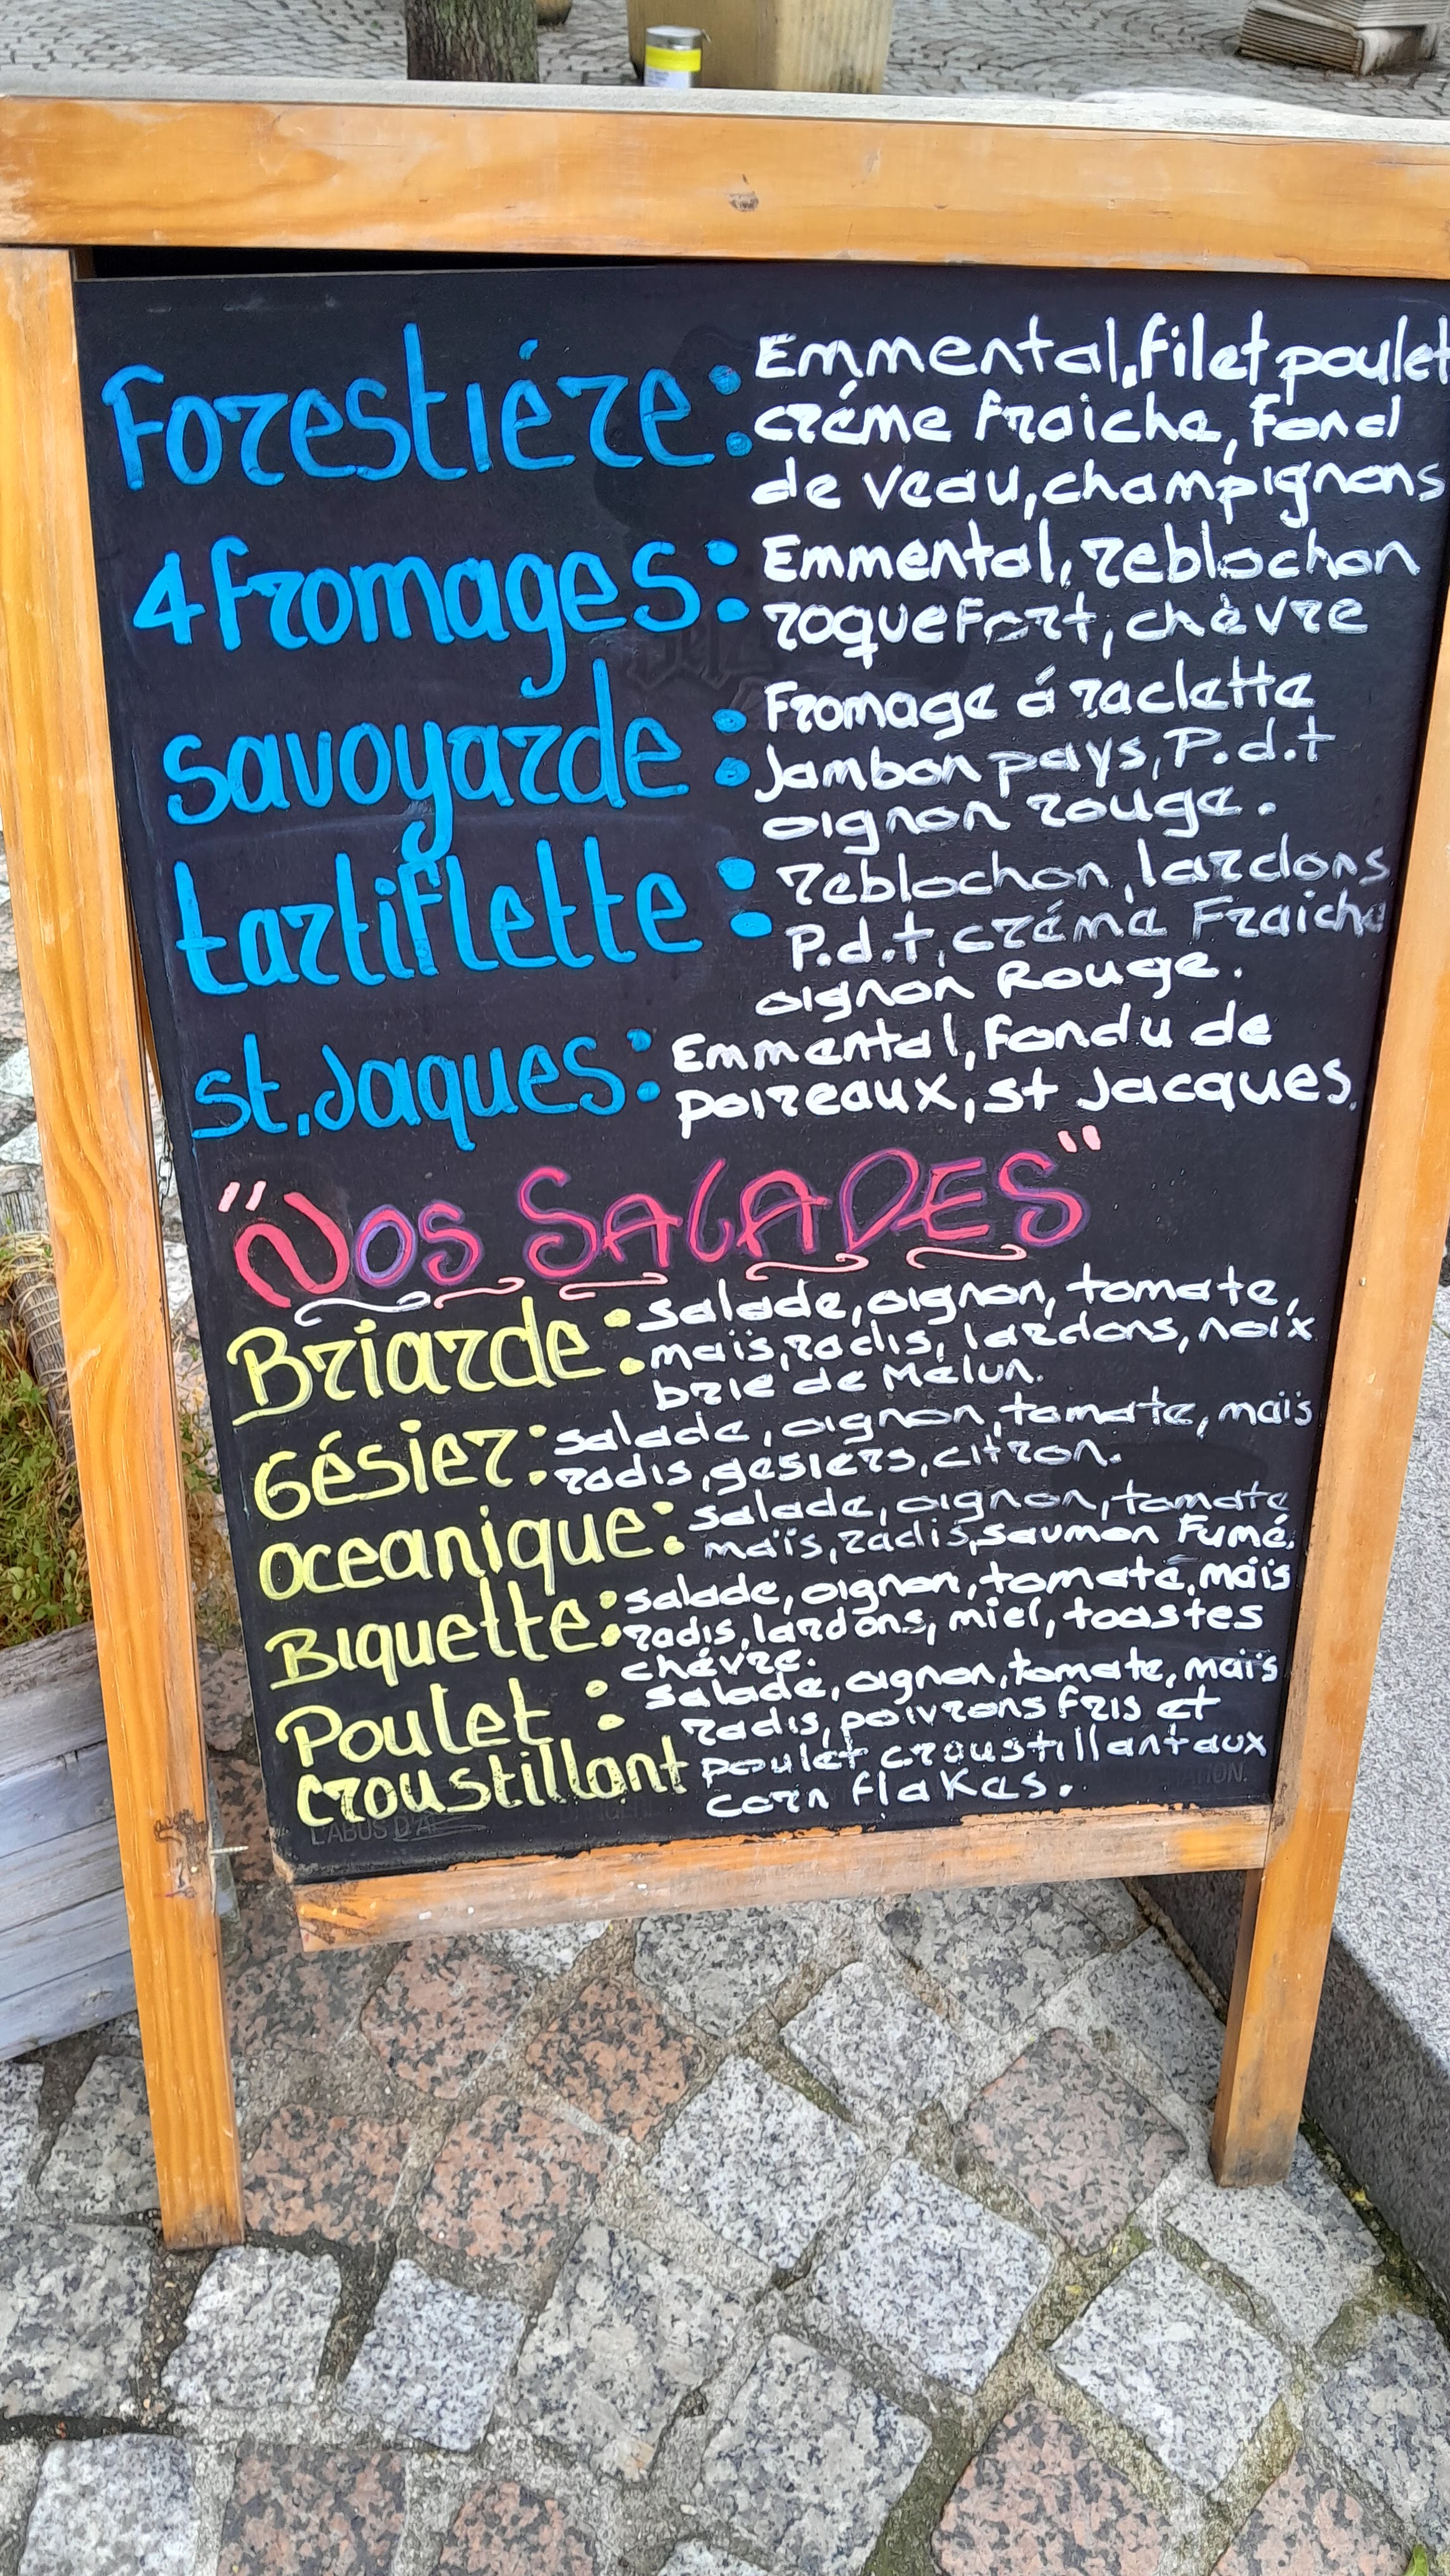 Forestiére: Emmental, filet poulet
créme fraiche, Fond
de veau, champignons
4 fromages: Emmental, reblochon
roquefort, chèvre
savoyarde: Fromage á raclette
Jambon pays, P.d.t
oignon rouge.
tartiflette: reblochon, lardons
P.d.t, créme Fraiche
oignon Rouge.
st.Jaques: Emmental, fondu de
poireaux, st Jacques.
"NOS SALADES"
Briarde: salade, oignon, tomate,
maïs, radis, lardons, noix
brie de Melun.
Gésier: salade, oignon, tomate, maïs
radis, gesiers, citron.
oceanique: salade, oignon, tomate
maïs, radis, saumon Fumé.
Biquette: salade, oignon, tomate, maïs
radis, lardons, miel, toastes
chévre.
Poulet : salade, oignon, tomate, maïs
radis, poivrons fris et
croustillant poulet croustillant aux
corn flakes.
L'ABUS D'A